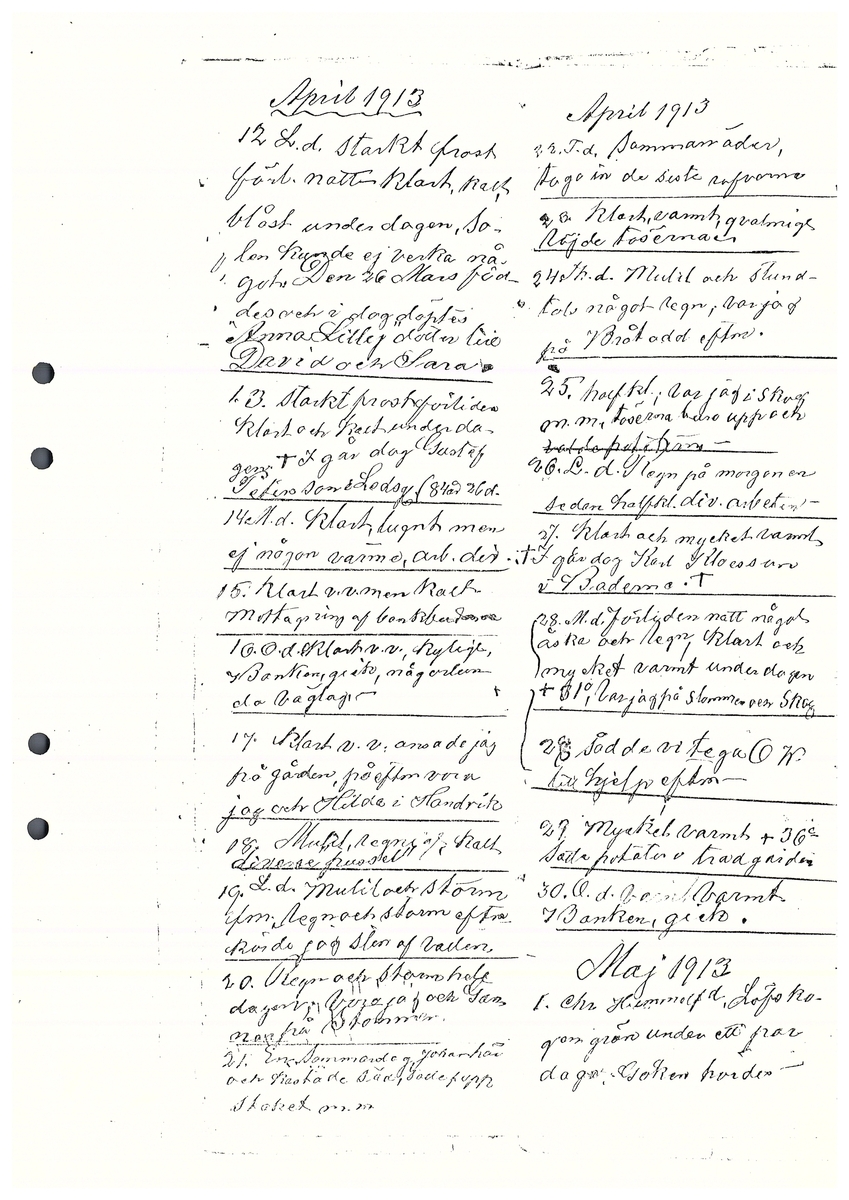 April 1913
12 L.d. starkt frost
förl. natt klart, kalt
blåst under dagen, So-
len kunde ej verka nå-
got. Den 26 Mars föd-
des och i dag döptes
"Anna Lilly" dotter till
David och Sara.
13. starkt frost förliden
klart och kalt under da-
gen. † I går dog Gustaf
Peterson 84 år 26 d.
14 M.d. Klart, lugnt men
ej någon värme, arb. div.
15. Klart v.v. men kalt
Mottagning af bankbudena
16. O.d. Klart v.v., kyligt,
i Banken, gick, någorlun-
da väglag
17. Klart v.v. ansade jag
på gården, på eftm vora
jag och Hilda i Hendrik
18. Mulit, regnigt, kalt
diverse pussel
19. L.d. Mulit och storm
fm. regn och storm eftm
körde jag sten af vallen
20. Regn och storm hela
dagen, Vora jag och
på Stommen.
21. En Sommardag,
och kastade säd,
staket m.m
April 1913
22. T.d. Sommarväder,
togo in de siste rofvorna
23. Klart, varmt, qvalmigt
Röjde tosserna
24 Th.d. Mulit och stund-
tals något regn; var jag
på Bråtadd eftm.
25. halfkl.; var jag i skog
m.m, töserna voro upp och
26. L.d. Regn på morgonen
sedan halfkl. div. arbeten
27. Klart och mycket varmt
† I går dog Karl Klaesson
i Baderna. †
28. M.d. förliden natt något
åska och regn, Klart och
mycket varmt under dagen
+ 31°, Var jag på Stommen över Skog
28 sådde vi tega O W.
till hjelp eftm
29. Myckel varmt + 36°
Satte potater i trädgården
30. O.d. varmt
i Banken, gick.
Maj 1913
1. Chr Himmelf d, Löfsko-
gen grön under ett par
dagar. Göken hördes